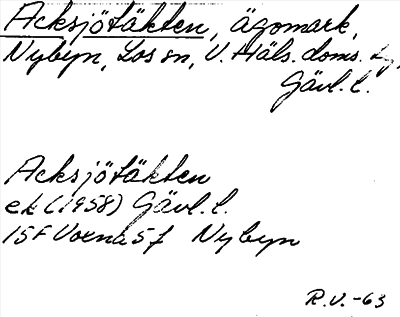 Acksjötäkten, ägomark,
Nybyn, Los sn, V. Häls. doms. tg,
Gävl. l.
Acksjötäkten
ek (1958) Gävl. l.
15F Voxna 5f Nybyn
R.V.-63